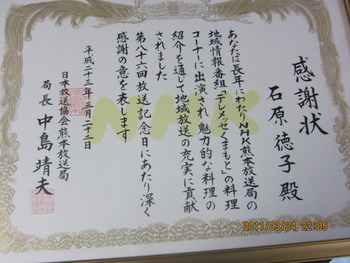 感謝状
石原徳子 殿
あなたは長年にわたりNHK熊本放送局の
地域情報番組「テレメッセくまもと」の料理
コーナーに出演され魅力的な料理の
紹介を通じて地域放送の充実に貢献
されました
第八十六回放送記念日にあたり深く
感謝の意を表します
平成二十三年三月二十二日
日本放送協会熊本放送局
局長 中島靖夫
NHK
2011/03/24 22:05